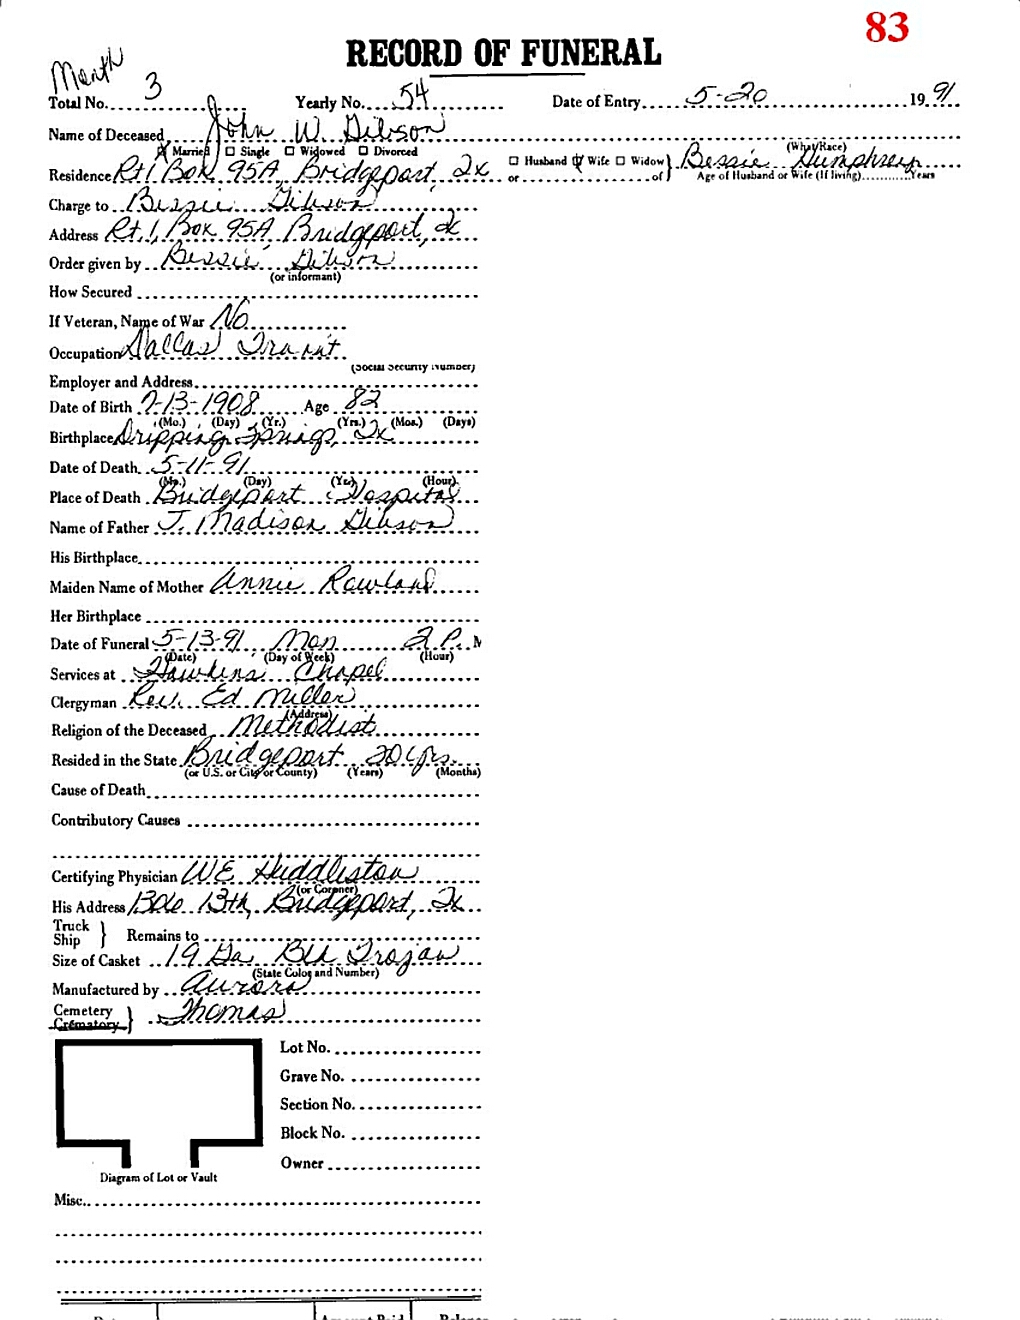 83
RECORD OF FUNERAL
Month
Total No. 3 Yearly No. 54 Date of Entry 5-20 1991
Name of Deceased John W. Gibson
(What Race)
Married Single Widowed Divorced Husband Wife Widow } Bessie Humphrey
Residence Rt 1 Box 95A, Bridgeport, Tx or of } Age of Husband or Wife (If living) Years
Charge to Bessie Gibson
Address Rt. 1, Box 95A Bridgeport, Tx
Order given by Bessie Gibson
(or informant)
How Secured
If Veteran, Name of War No
Occupation Dallas Transit
(Social Security Number)
Employer and Address
Date of Birth 7-13-1908 Age 82
(Mo.) (Day) (Yr.) (Yrs.) (Mos.) (Days)
Birthplace Dripping Springs, Tx
Date of Death 5-11-91
(Mo.) (Day) (Yr.) (Hour)
Place of Death Bridgeport Hospital
Name of Father J. Madison Gibson
His Birthplace
Maiden Name of Mother Annie Rowland
Her Birthplace
Date of Funeral 5-13-91 Mon 2 P. M
(Date) (Day of Week) (Hour)
Services at Hawkins Chapel
Clergyman Rev. Ed Miller
(Address)
Religion of the Deceased Methodist
Resided in the State Bridgeport 20 yrs.
(or U.S. or City or County) (Years) (Months)
Cause of Death
Contributory Causes
Certifying Physician WE Huddleston
(or Coroner)
His Address 1306 13th, Bridgeport, Tx
Truck
Ship } Remains to
Size of Casket 19 Ga Blk Trojan
(State Color and Number)
Manufactured by Aurora
Cemetery
Crematory } Thomas
Lot No.
Grave No.
Section No.
Block No.
Owner
Diagram of Lot or Vault
Misc.
Amount Paid Balance